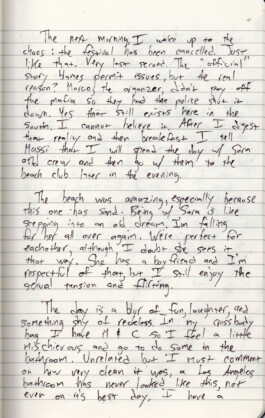 The next morning I wake up to the
chaos: the festival has been cancelled. Just
like that. Very last second. The "official"
story blames permit issues, but the real
reason? Marco, the organizer, didn't pay off
the mafia so they had the police shut it
down. Yes that still exists here in the
South, I cannot believe it. After I digest
that reality and then breakfast I tell
Massi that I will spend the day w/ Sara
and crew and then go w/ them to the
beach club later in the evening.
The beach was amazing, especially because
this one has sand. Being w/ Sara is like
stepping into an old dream. I'm falling
for her all over again. We're perfect for
eachother, although I doubt she sees it
that way. She has a boyfriend and I'm
respectful of that, but I still enjoy the
sexual tension and flirting.
The day is a blur of fun, laughter, and
something shy of reckless. In my crossbody
bag I have M & C so I feel a little
mischievous and go to do some in the
bathroom. Unrelated but I must comment
on how very clean it was, a Los Angeles
bathroom has never looked like this, not
even on its best day. I have a